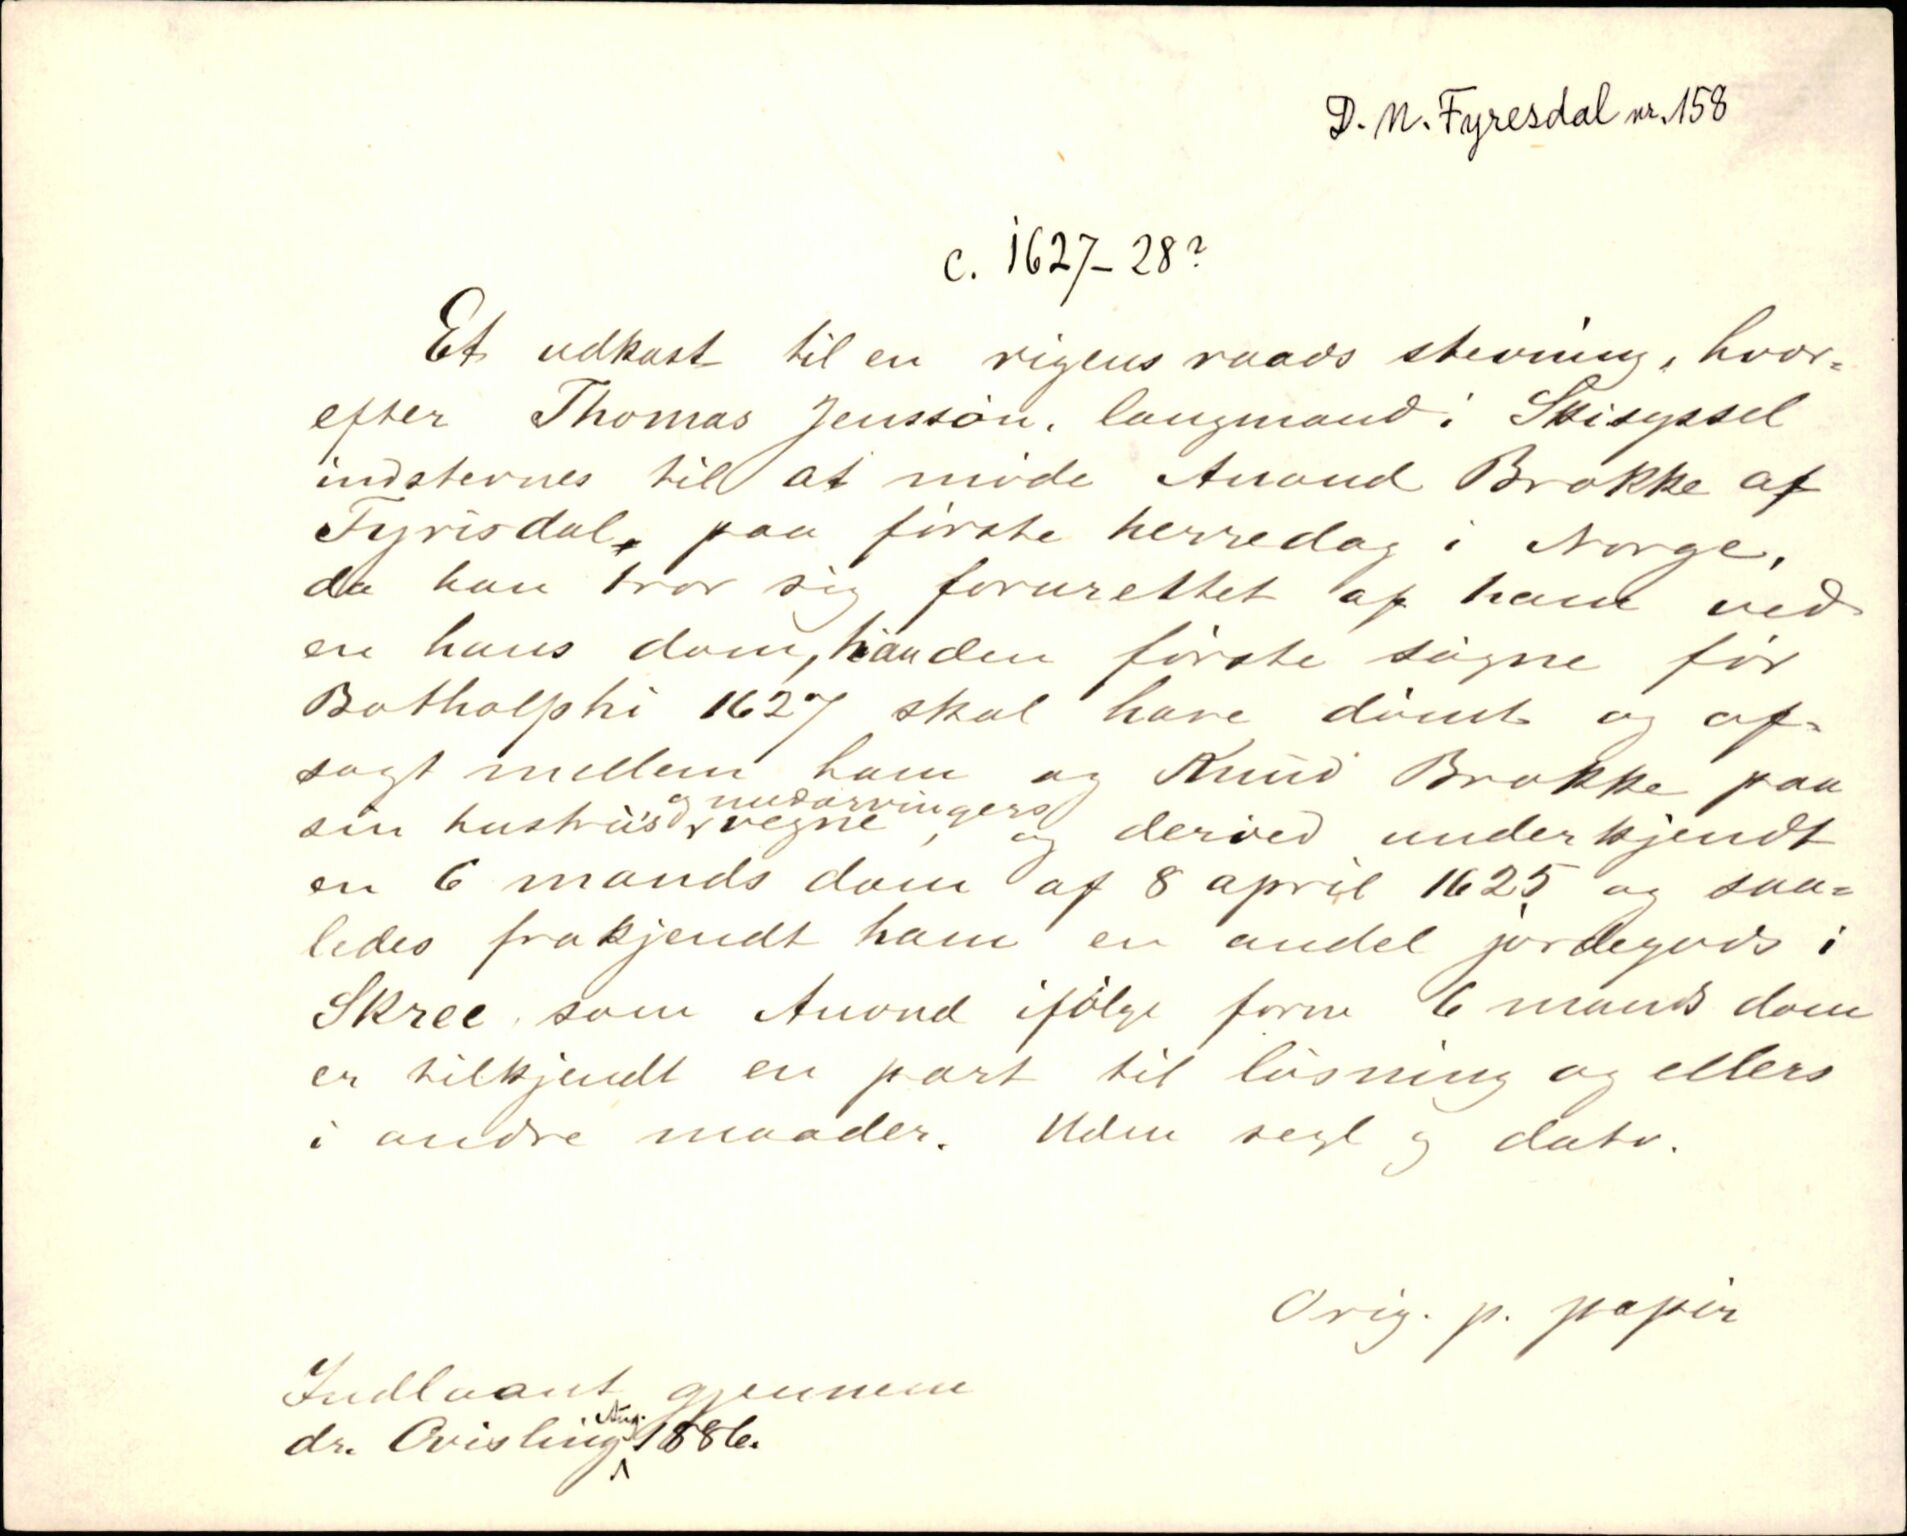 D. N. Fyresdal nr. 158
c. 1627-28?
Et udkast til en rigens raads stevning, hvor-
efter Thomas Jenssön, laugmand i Skisyssel
indstevnes til at möde Anond Brokke af
Fyrisdal, paa förste herredag i Norge,
da han tror sig forurettet af ham ved
en hans dom, han den förste sögne för
Botholphi 1627 skal have dömt og af-
sagt mellem ham og Knud Brokke paa
sin hustrus og medarvingers vegne, og derved underkjendt
en 6 mands dom af 8 april 1625 og saa-
ledes frakjendt ham en andel jordegods i
Skree som Anond ifölge forne 6 mands dom
er tilkjendt en part til lösning og ellers
i andre maader. Uden segl og dato.
Orig. p. papir
Indlaant gjennem
dr. Qvisling Aug. 1886.